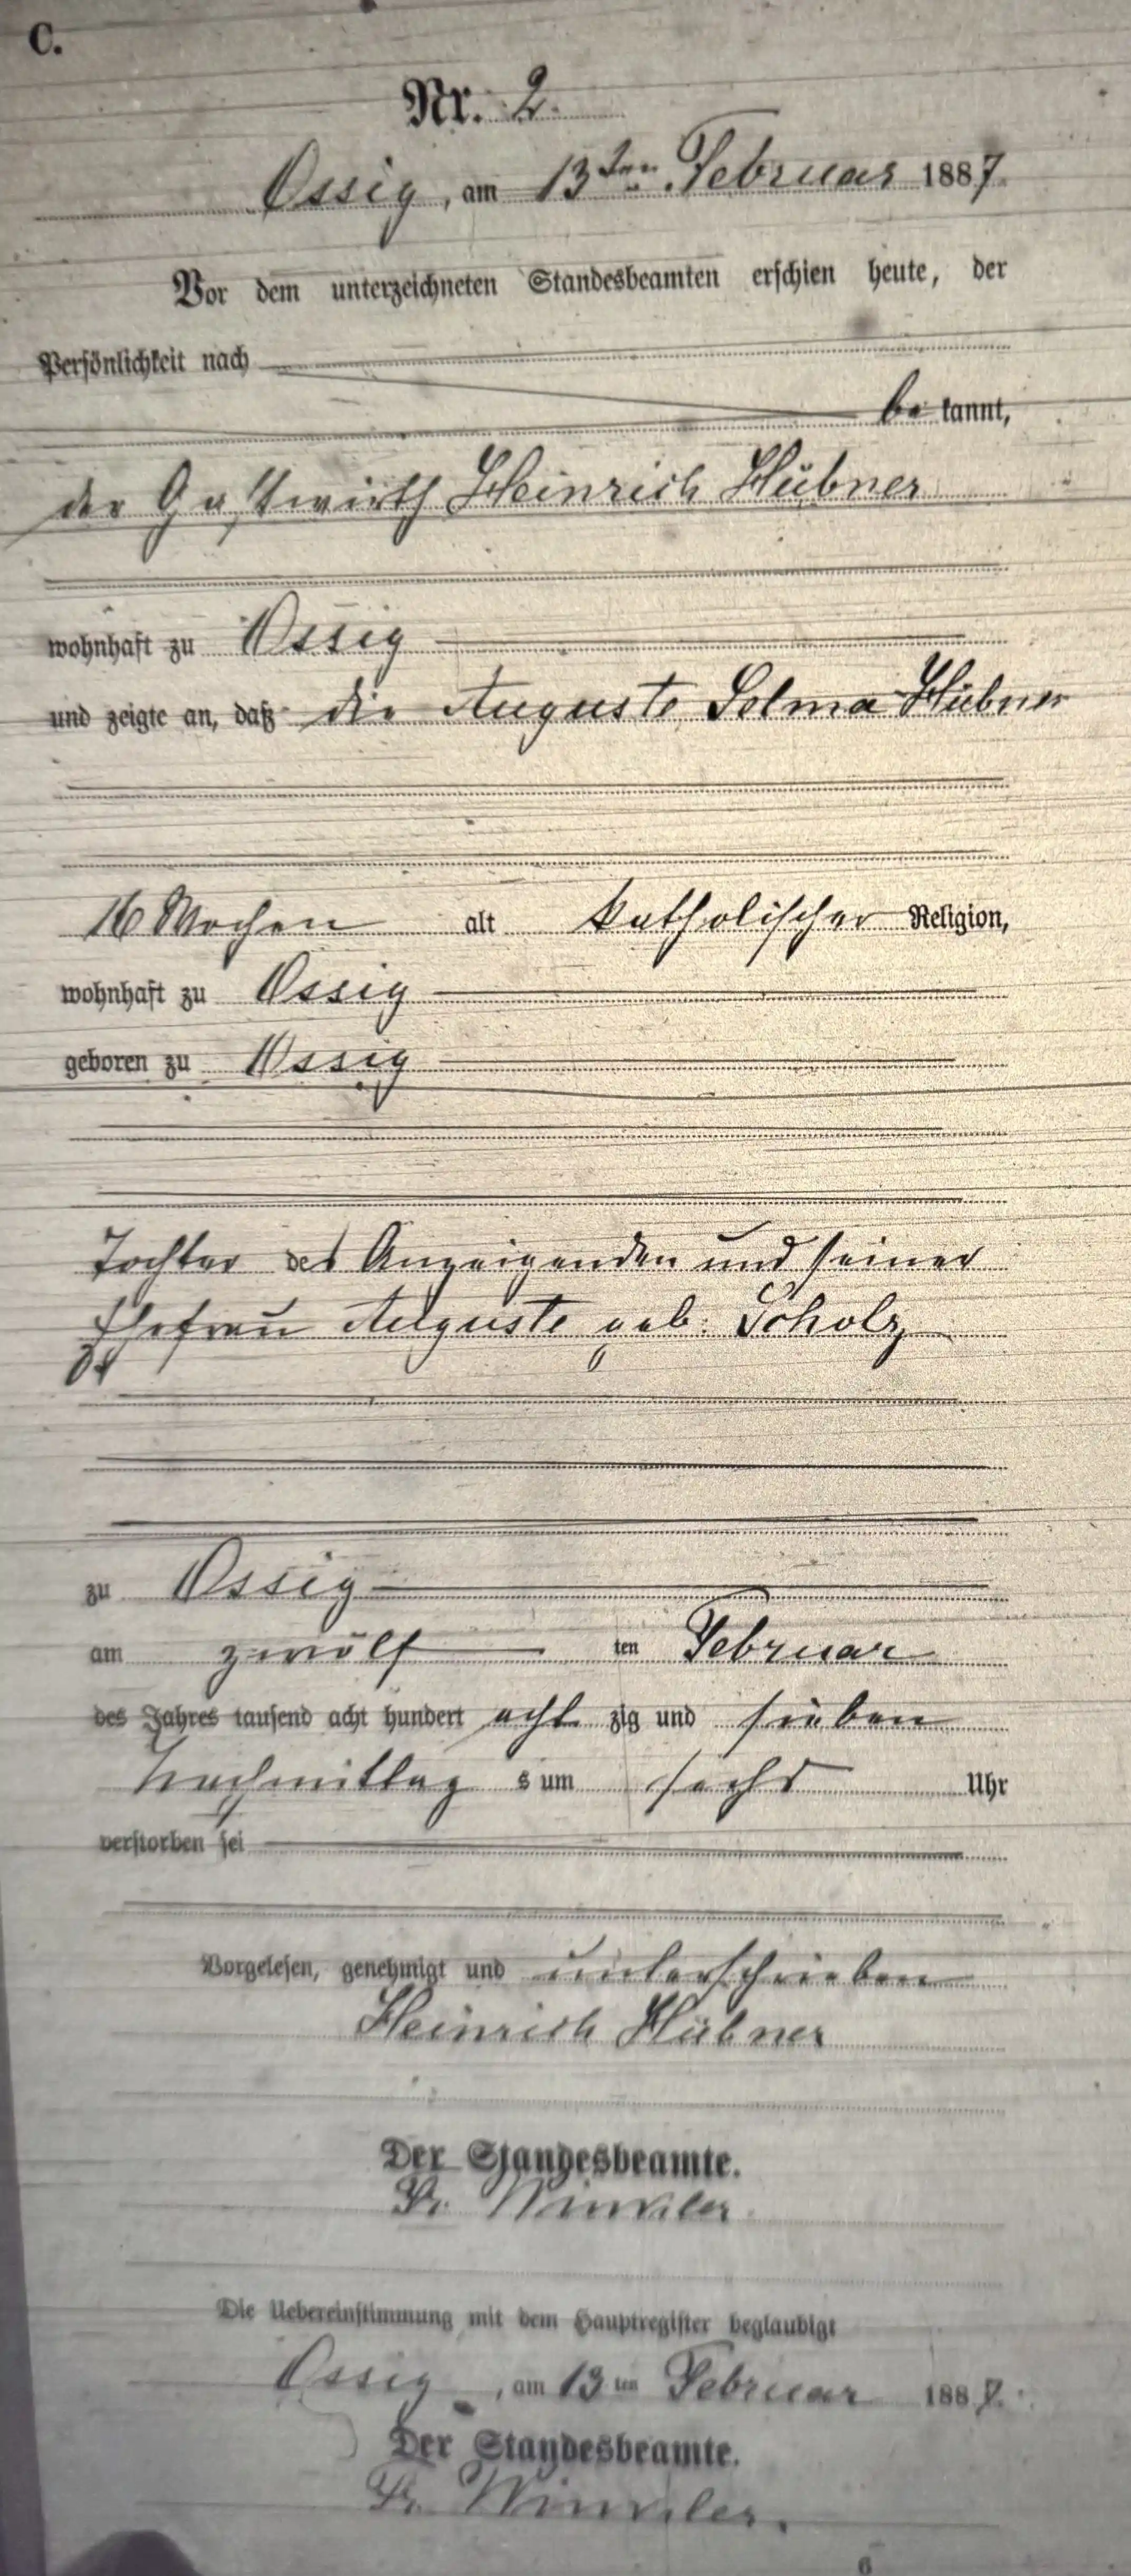 C.
Nr. 2.
Ossig, am 13ten Februar 1887.
Vor dem unterzeichneten Standesbeamten erschien heute, der
Persönlichkeit nach
be kannt,
der Gastwirth Heinrich Hübner
wohnhaft zu Ossig
und zeigte an, daß die Auguste Selma Hübner
16 Wochen alt katholischer Religion,
wohnhaft zu Ossig
geboren zu Ossig
Tochter des Anzeigenden und seiner
Ehefrau Auguste geb. Scholz
zu Ossig
am zwölf ten Februar
des Jahres tausend acht hundert acht zig und sieben
Nachmittag s um sechs Uhr
verstorben sei
Vorgelesen, genehmigt und unterschrieben
Heinrich Hübner
Der Standesbeamte.
Fr. Winkler
Die Uebereinstimmung mit dem Hauptregister beglaubigt
Ossig, am 13ten Februar 1887.
Der Standesbeamte.
Fr. Winkler.
6